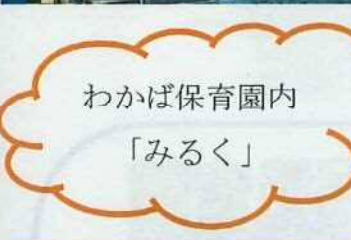 わかば保育園内
「みるく」